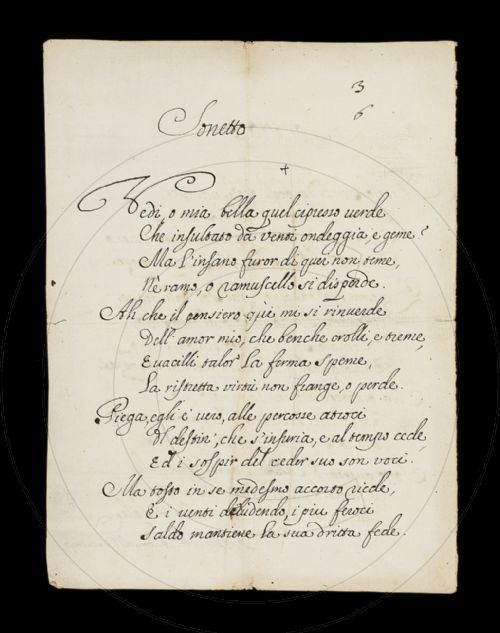 3
6
Sonetto
+
Vedi, o mia bella quel cipresso verde
Che insultato da venti ondeggia, e geme?
Ma l'insano furor di quei non teme,
Nè ramo, o ramuscello si disperde.
Ah che il pensiero què mi si rinverde
Dell'amor mio, che benche crolli, e treme,
E vacilli talor la ferma speme,
La ristretta virtù non frange, o perde.
Piega, egli è vero, alle percosse atroci
Di destin', che s'infuria, e al tempo cede,
Ed i sospir del ceder suo son voci.
Ma tosto in se medesmo accorto riede,
E, i venti deludendo, i piu feroci
Saldo mantiene la sua dritta fede.